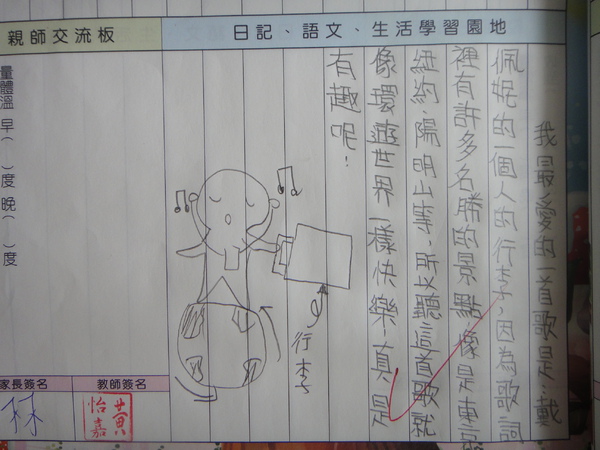 日記、語文、生活學習園地
我最愛的一首歌是:戴
佩妮的一個人的行李,因為歌詞
裡有許多名勝的景點像是東京
紐約、陽明山等,所以聽這首歌就
像環遊世界一樣快樂真是
有趣呢!
行李
親師交流板
量體溫 早( )度 晚( )度
教師簽名
黃怡嘉
家長簽名
林